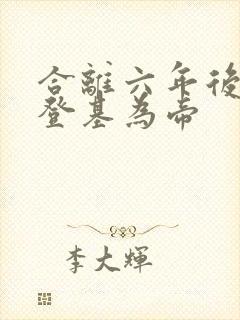 合離六年後
登基為帝
李大輝